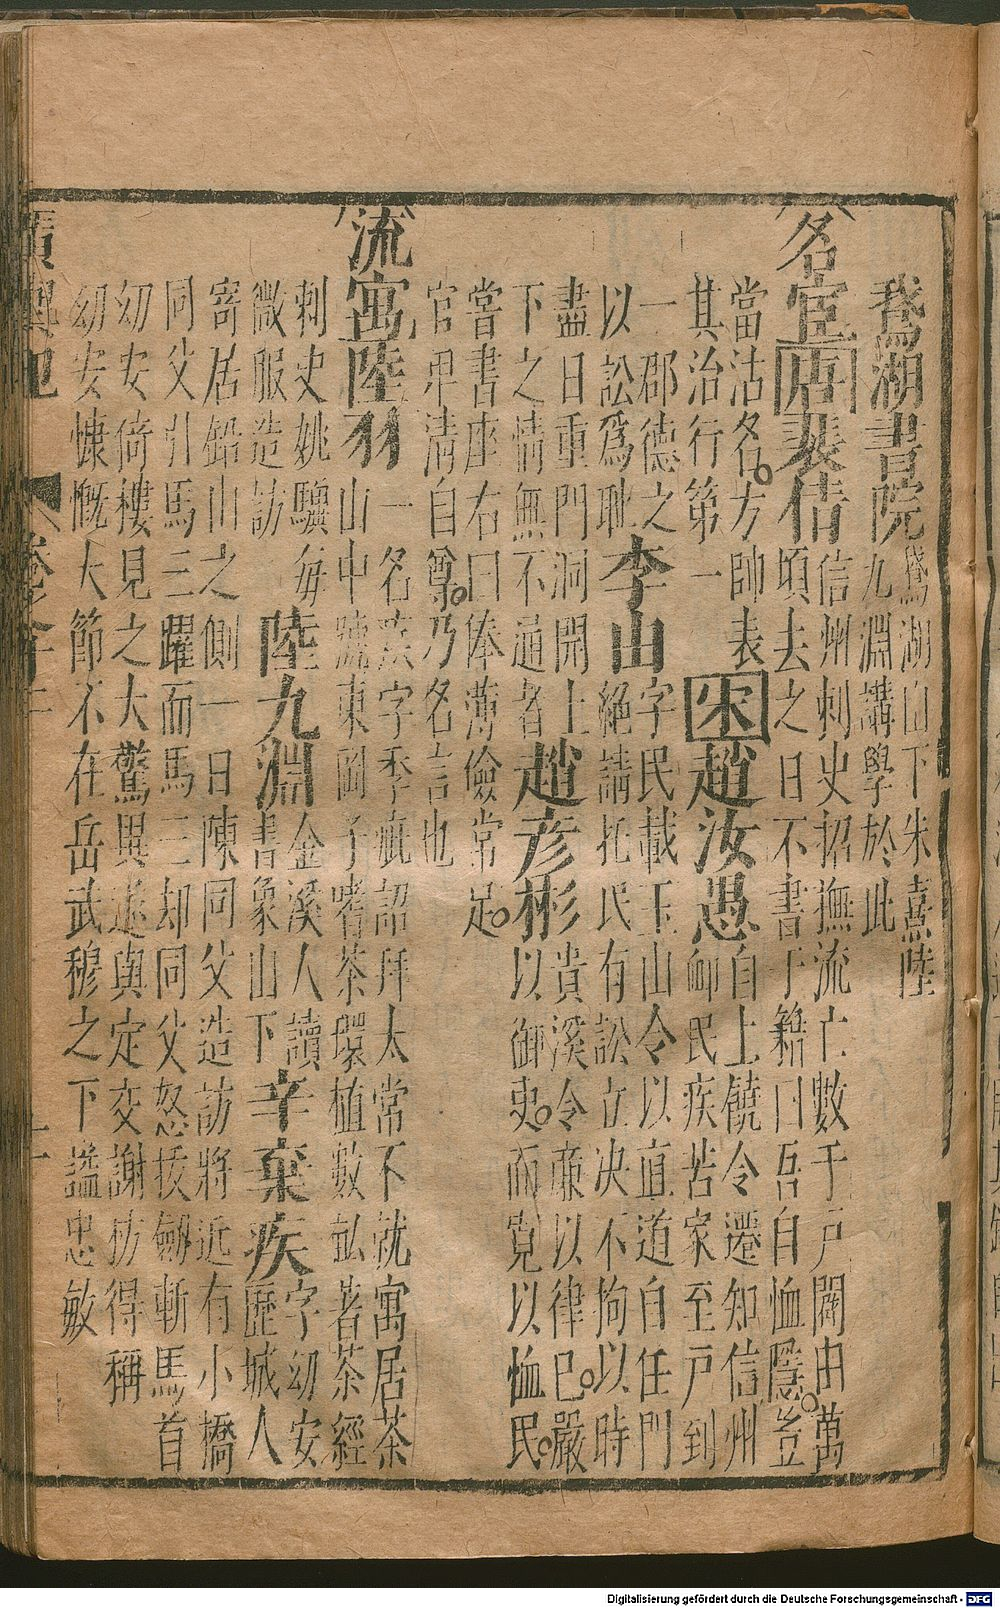 鵞湖書院 鵞湖山下朱熹陸
九淵講學於此
名宦 唐 裴佶 信州刺史招撫流亡數千戸闢田萬
頃去之日不書于籍曰吾自恤隱。豈
當沽名。方帥表
其治行第一 宋 趙汝愚 自上饒令遷知信州
卹民疾苦家至戸到
一郡德之
以訟爲耻 李山 字民載玉山令以直道自任門
絕請托民有訟立决不拘以時
盡日重門洞開上
下之情無不通者 趙彦彬 貴溪令亷以律已。嚴
以御吏。而寬以恤民。
嘗書座右曰俸薄儉常足。
官卑清自尊。乃名言也
流寓 陸羽 一名疾字季疵詔拜太常不就寓居茶
山中號東岡子嗜茶環植數畝著茶經
刺史姚驥毎
微服造訪 陸九淵 金溪人讀
書象山下 辛棄疾 字幼安
歷城人
寄居鉛山之側一日陳同父造訪將近有小橋
同父引馬三躍而馬三却同父怒拔劒斬馬首
幼安倚樓見之大驚異遂與定交謝枋得稱
幼安慷慨大節不在岳武穆之下謚忠敏
廣輿記 卷之十二 十一
Digitalisierung gefördert durch die Deutsche Forschungsgemeinschaft - DFG